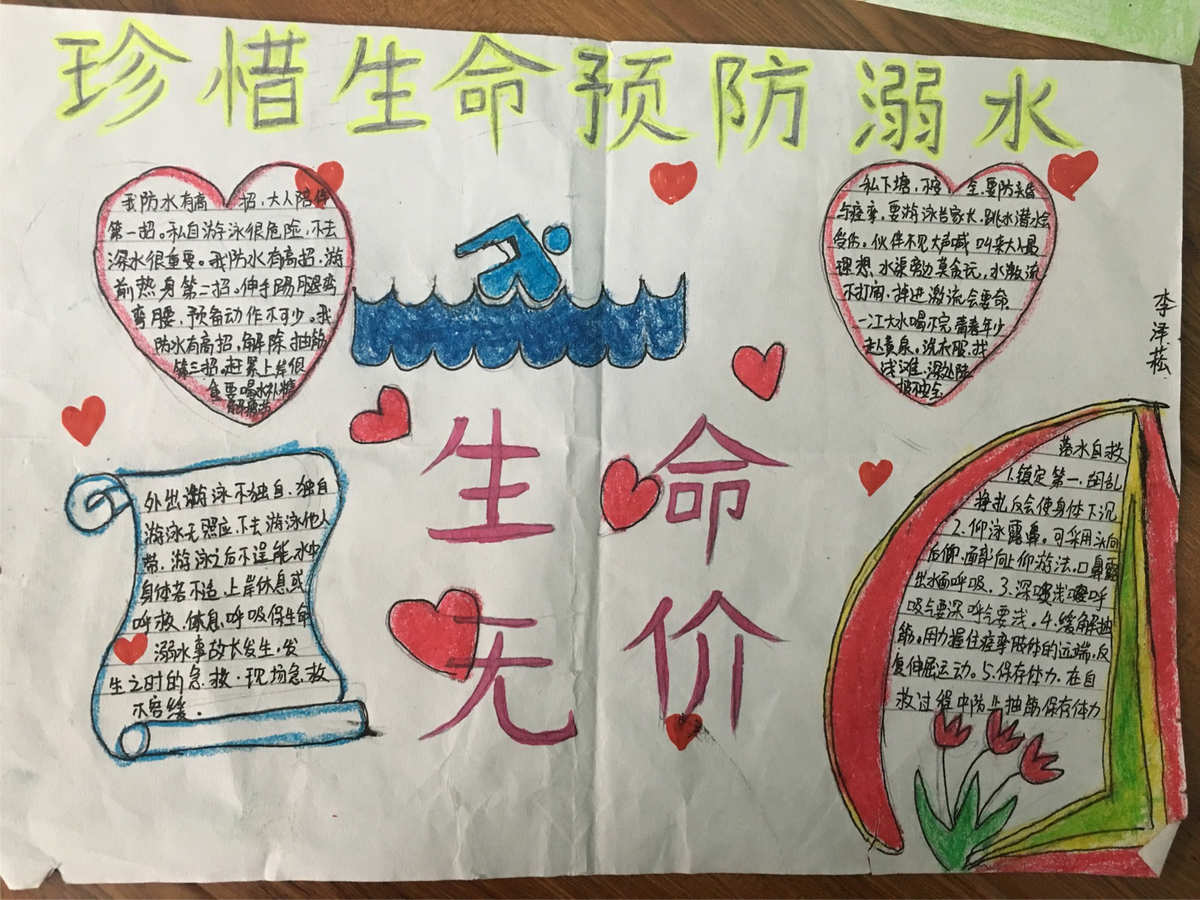 珍惜生命预防溺水
我防水有高 招,大人陪伴
第一招。私自游泳很危险,不去
深水很重要。我防水有高招,游
前热身第二招。伸手踢腿弯
弯腰,预备动作不可少。我
防水有高招,解除抽筋
第三招。赶紧上岸很
重要喝水补糖
私下塘,不 全,要防
与痉挛。要游泳告家长,跳水潜水会
受伤。伙伴不见大声喊,叫来大人最
理想,水渠旁边莫贪玩,水激流
不打闹,掉进激流会要命。
一江大水喝不完,青年少
赴黄泉。洗衣服,找
浅滩,深处陡
很不安全。
李泽菘
生命
无价
外出游泳不独自,独自
游泳无照应,不去游泳他人
带,游泳之后不逞能,水中
身体若不适,上岸休息或
呼救,休息,呼吸保生命
溺水事故长发生,发
生之时的急救,现场急救
不容缓。
落水自救
1.镇定第一,胡乱
挣扎反会使身体下沉
2.仰泳露鼻。可采用头向
后仰,面部向上仰游法,口鼻露
出水面呼吸。3.深吸浅呼
吸气要深呼气要浅。4.缓解抽
筋。用力握住痉挛肢体的远端,反
复伸屈运动。5.保存体力,在自
救过程中防止抽筋保存体力